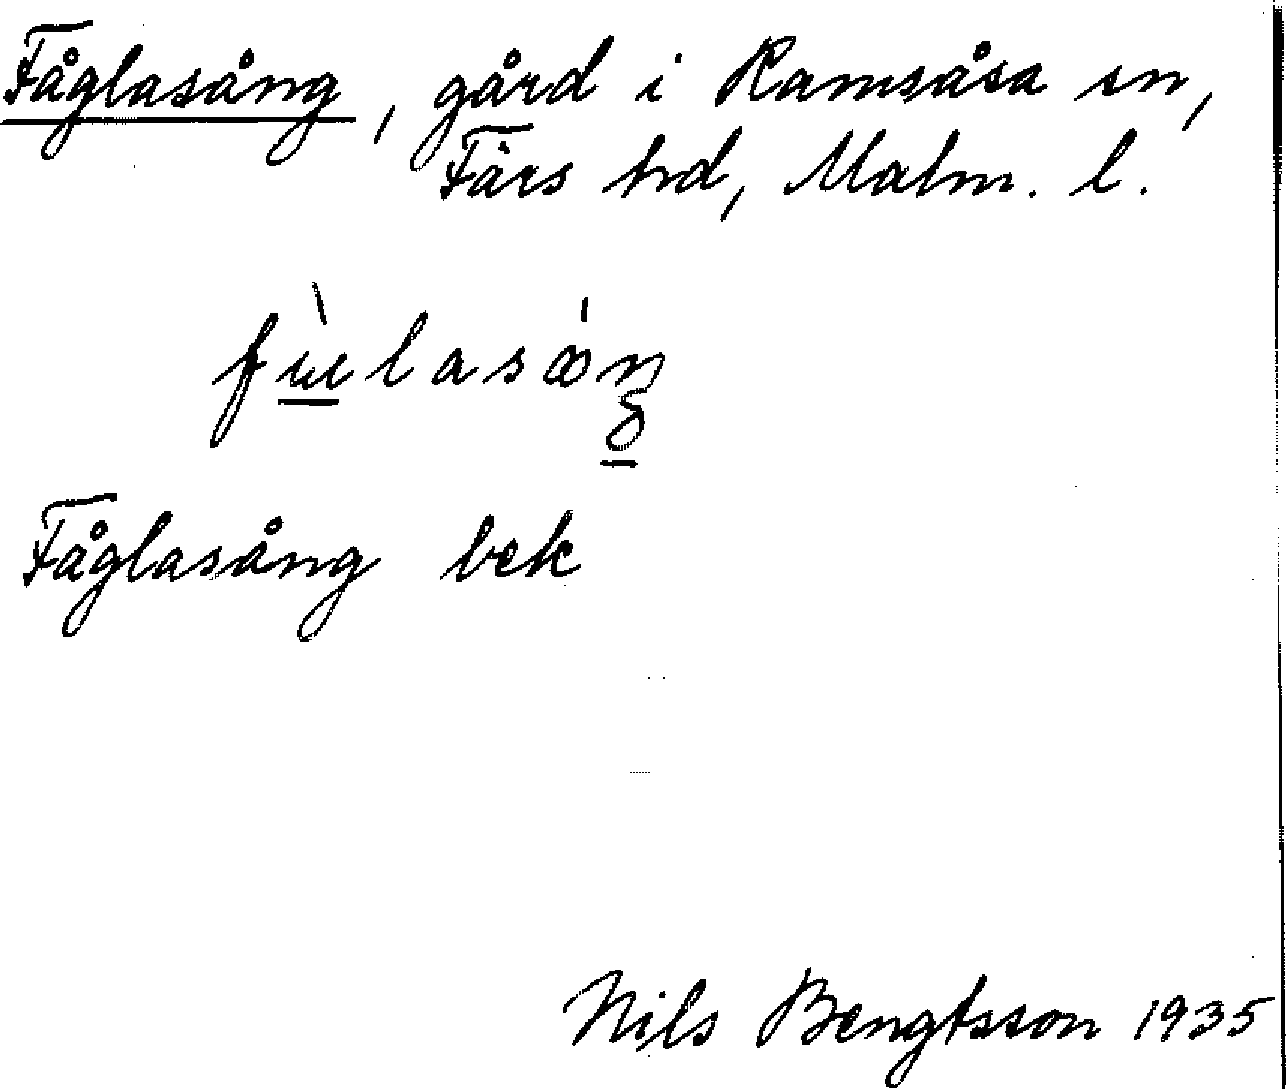 Fåglasång, gård i Ramsåsa sn,
Färs hrd, Malm. l.
Fåglasång bek
Nils Bengtsson 1935